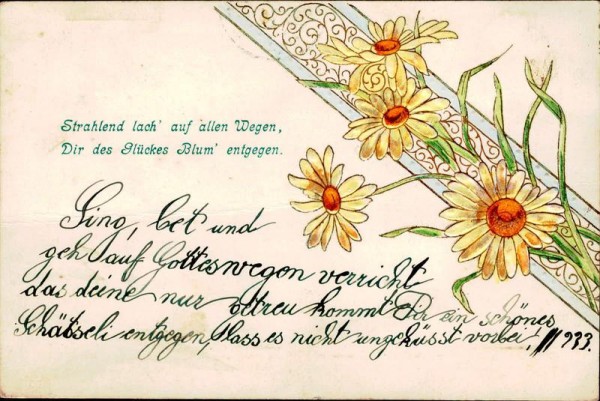 Strahlend lach' auf allen Wegen,
Dir des Glückes Blum' entgegen.
Sing, bet und
geh auf Gotteswegen verricht
das deine nur getreu kommt Dir ein schönes
Schätseli entgegen, lass es nicht ungeküsst vorbei.